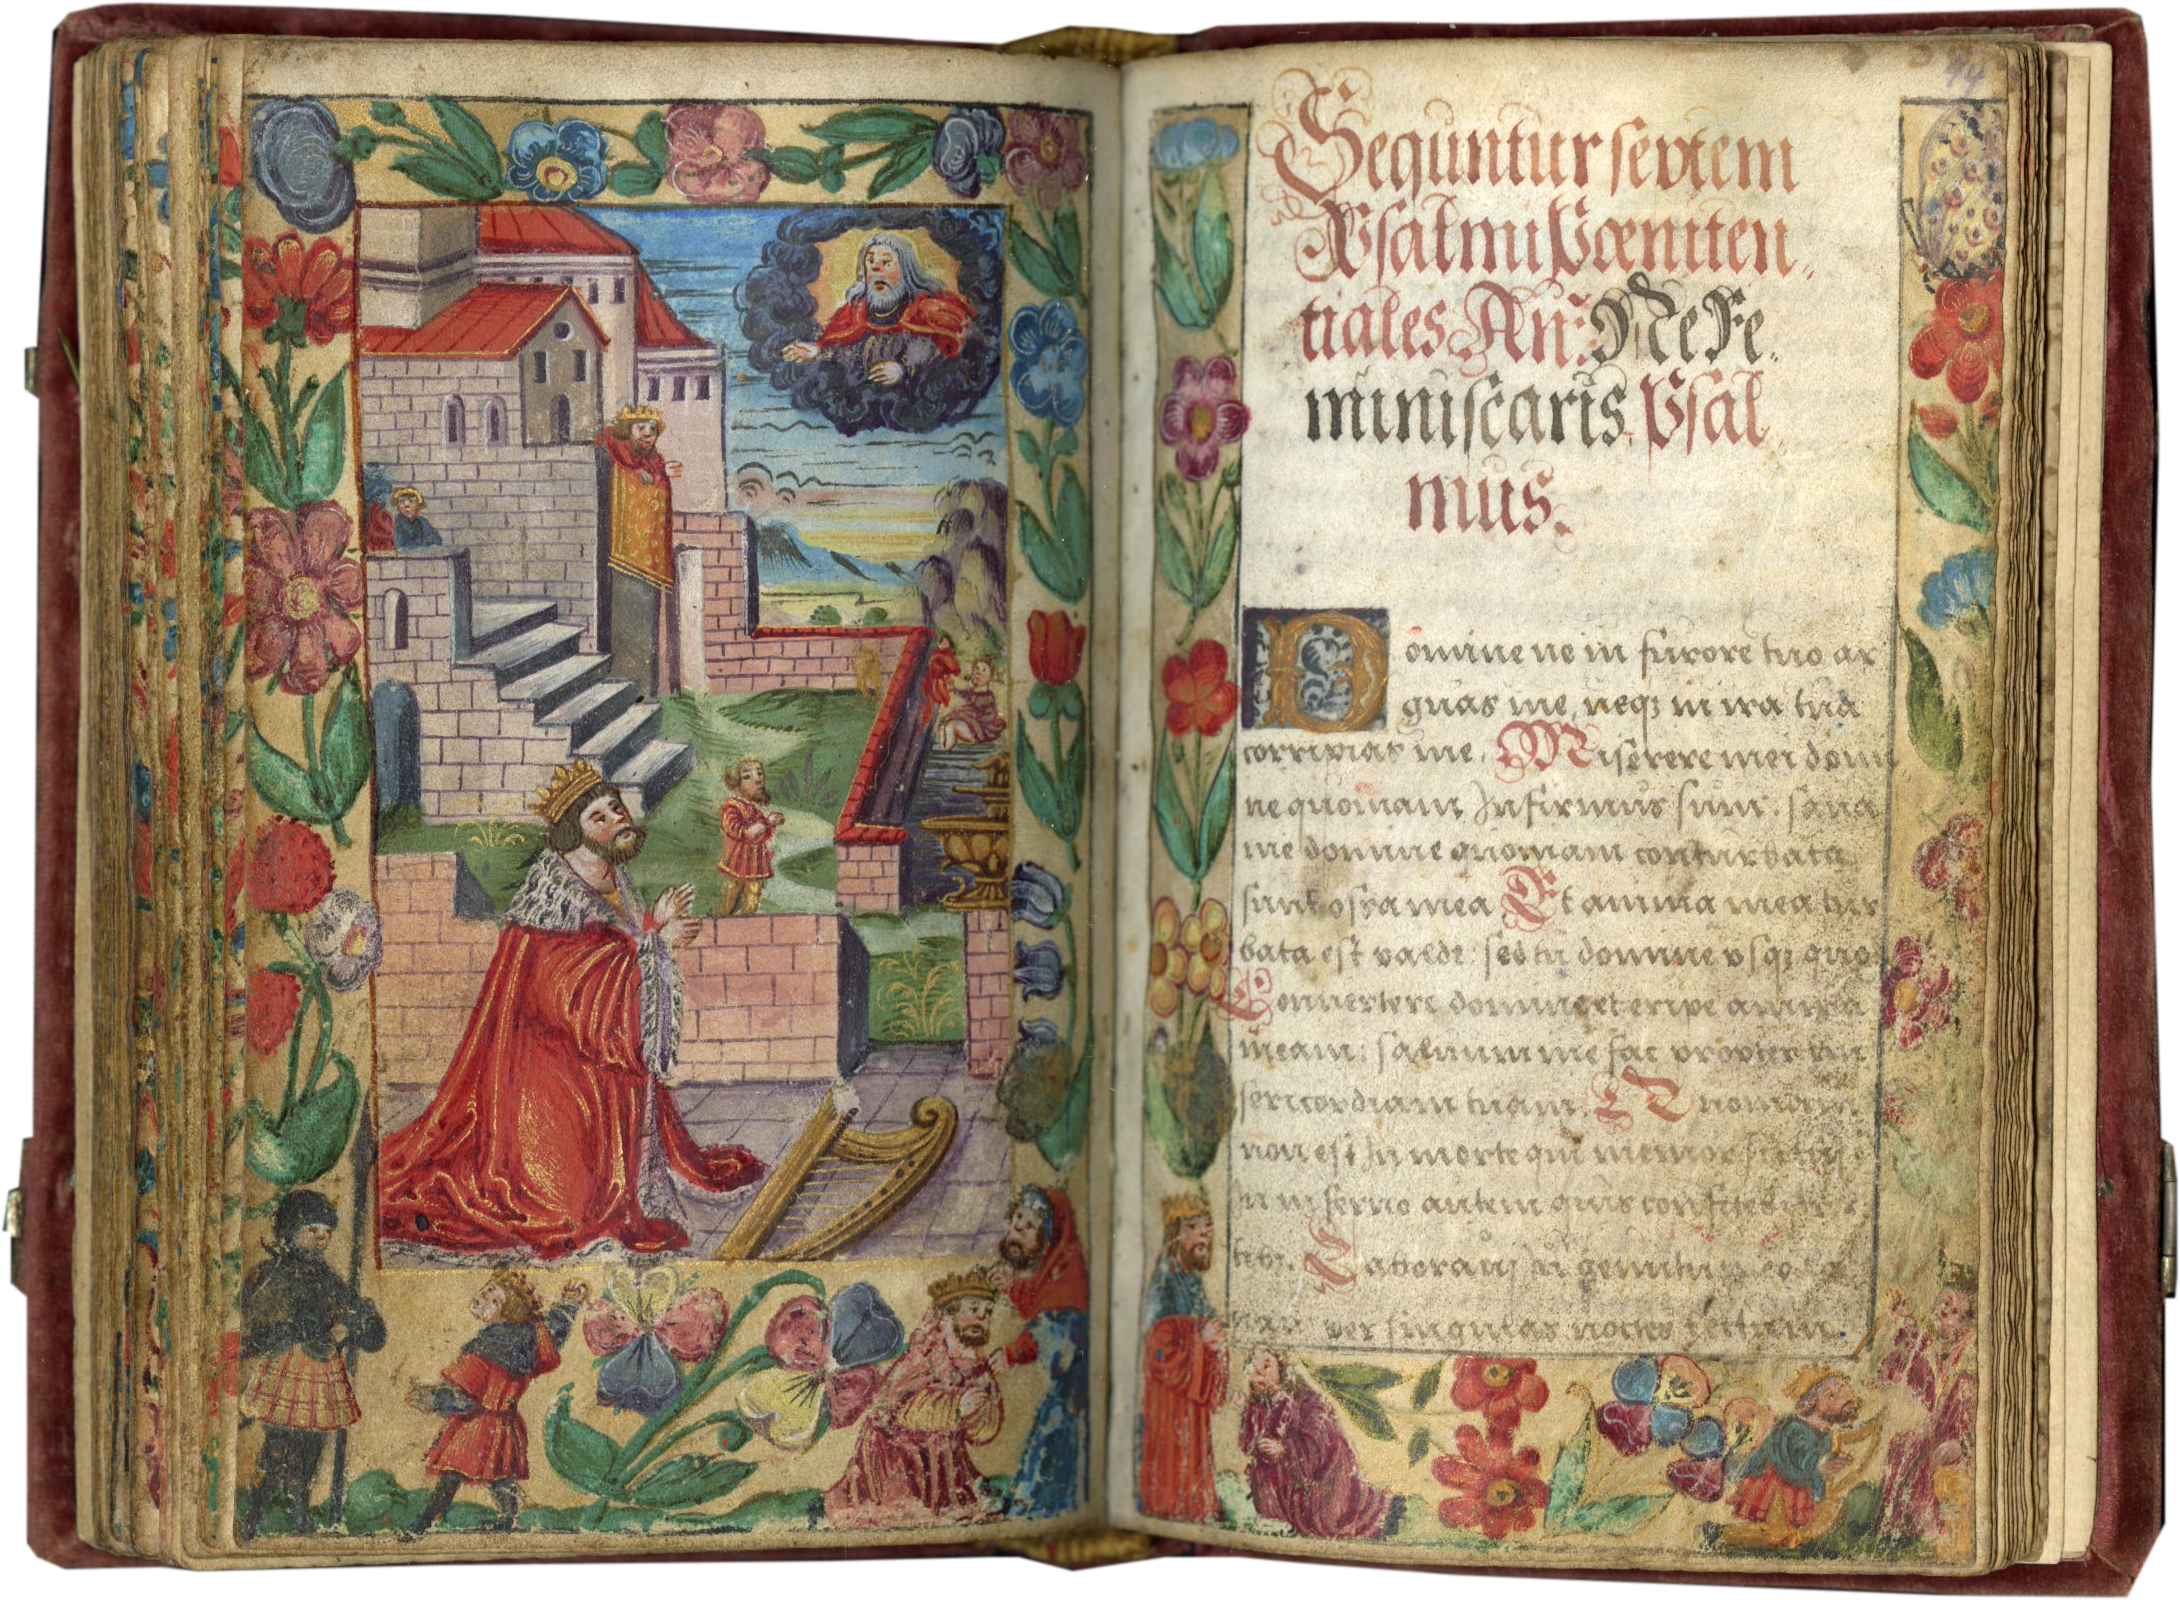 44
Sequntur septem
Psalmi Pœniten„
tiales An̄: Ne Re„
miniscaris Psal„
mus.
Domine ne in furore tuo ar
guas me, neq; in ira tua
corripias me. Miserere mei domi
ne quoniam Infirmus sum: sana
me domine quoniam conturbata
sunt ossa mea Et anima mea tur
bata est valde: sed tu domine vsq; quo
Conuertere domine et eripe anima
meam: saluum me fac propter mi
sericordiam tuam. Quoniam
non est In morte qui memor sit tui:
In inferno autem quis confitebitur
tibi. Laboraui In gemitu meo
per singulas noctes lectum